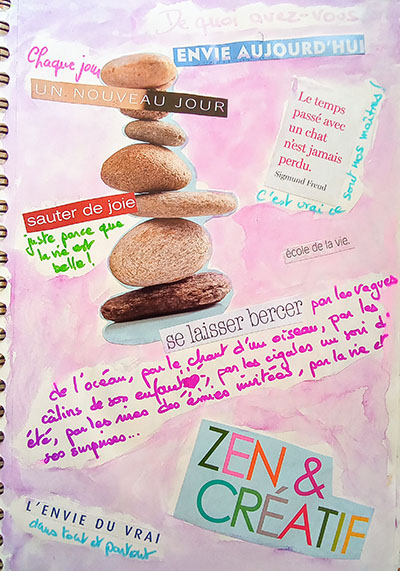 De quoi avez-vous
ENVIE AUJOURD'HUI
Chaque jour
UN NOUVEAU JOUR
Le temps
passé avec
un chat
n'est jamais
perdu.
Sigmund Freud
C'est vrai ce sont nos maîtres !
sauter de joie
juste parce que
la vie est
belle !
école de la vie.
se laisser bercer par les vagues
de l'océan, par le chant d'un oiseau, par les
câlins de son enfant, par les cigales un soir d'
été, par les rires des invitées, par la vie et
ses surprises...
ZEN &
CRÉATIF
L'ENVIE DU VRAI
dans tout et partout